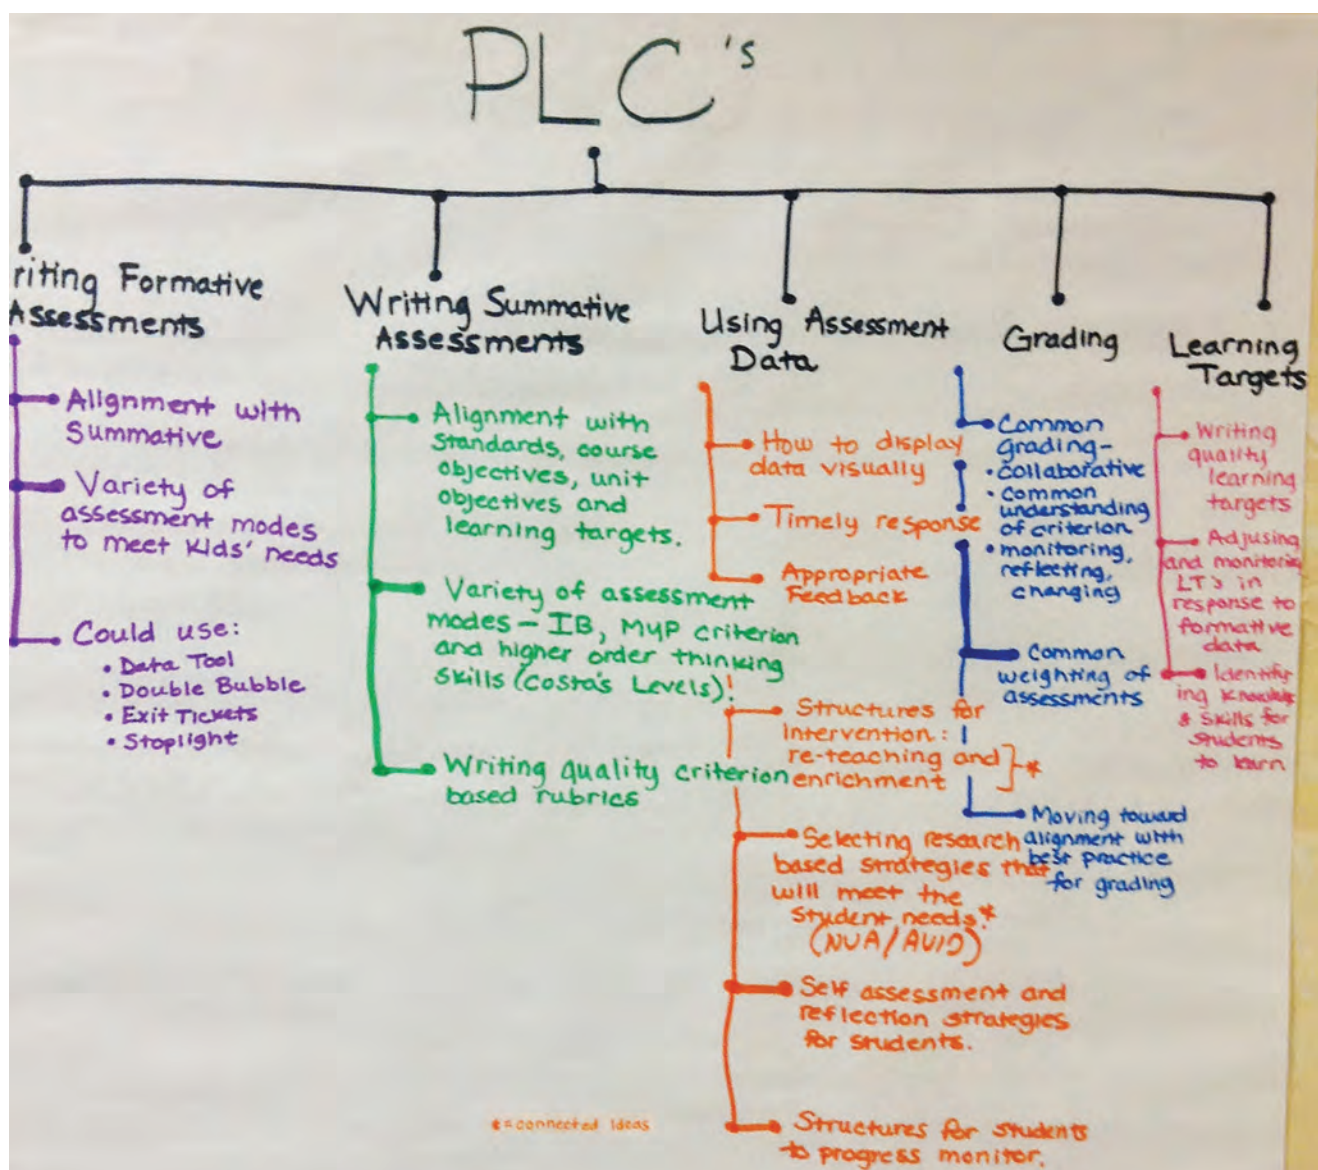 PLC's
riting Formative
Assessments
Alignment with
Summative
Variety of
assessment modes
to meet kids' needs
Could use:
• Data Tool
• Double Bubble
• Exit Tickets
• Stoplight
Writing Summative
Assessments
Alignment with
standards, course
objectives, unit
objectives and
learning targets.
Variety of assessment
modes - IB, MYP criterion
and higher order thinking
skills (Costa's Levels)!
Writing quality criterion
based rubrics
Using Assessment
Data
How to display
data visually
Timely response
Appropriate
Feedback
Structures for
Intervention:
re-teaching and
enrichment
*
Selecting research
based strategies that
will meet the
student needs.*
(NUA/AVID)
Self assessment and
reflection strategies
for students.
Structures for students
to progress monitor.
Grading
Common
grading-
• collaborative
• common
understanding
of criterion
• monitoring,
reflecting,
changing
Common
weighting of
assessments
Moving toward
alignment with
best practice
for grading
Learning
Targets
Writing
quality
learning
targets
Adjusing
and monitoring
LT's in
response to
formative
data
Identify
ing knowledge
& skills for
students
to learn
*=connected ideas